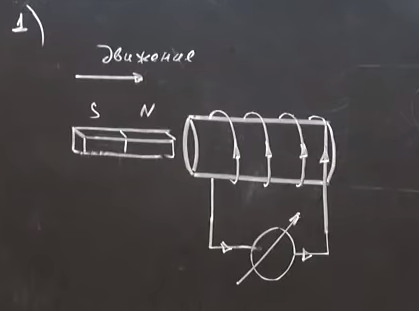 1)
движение
S N